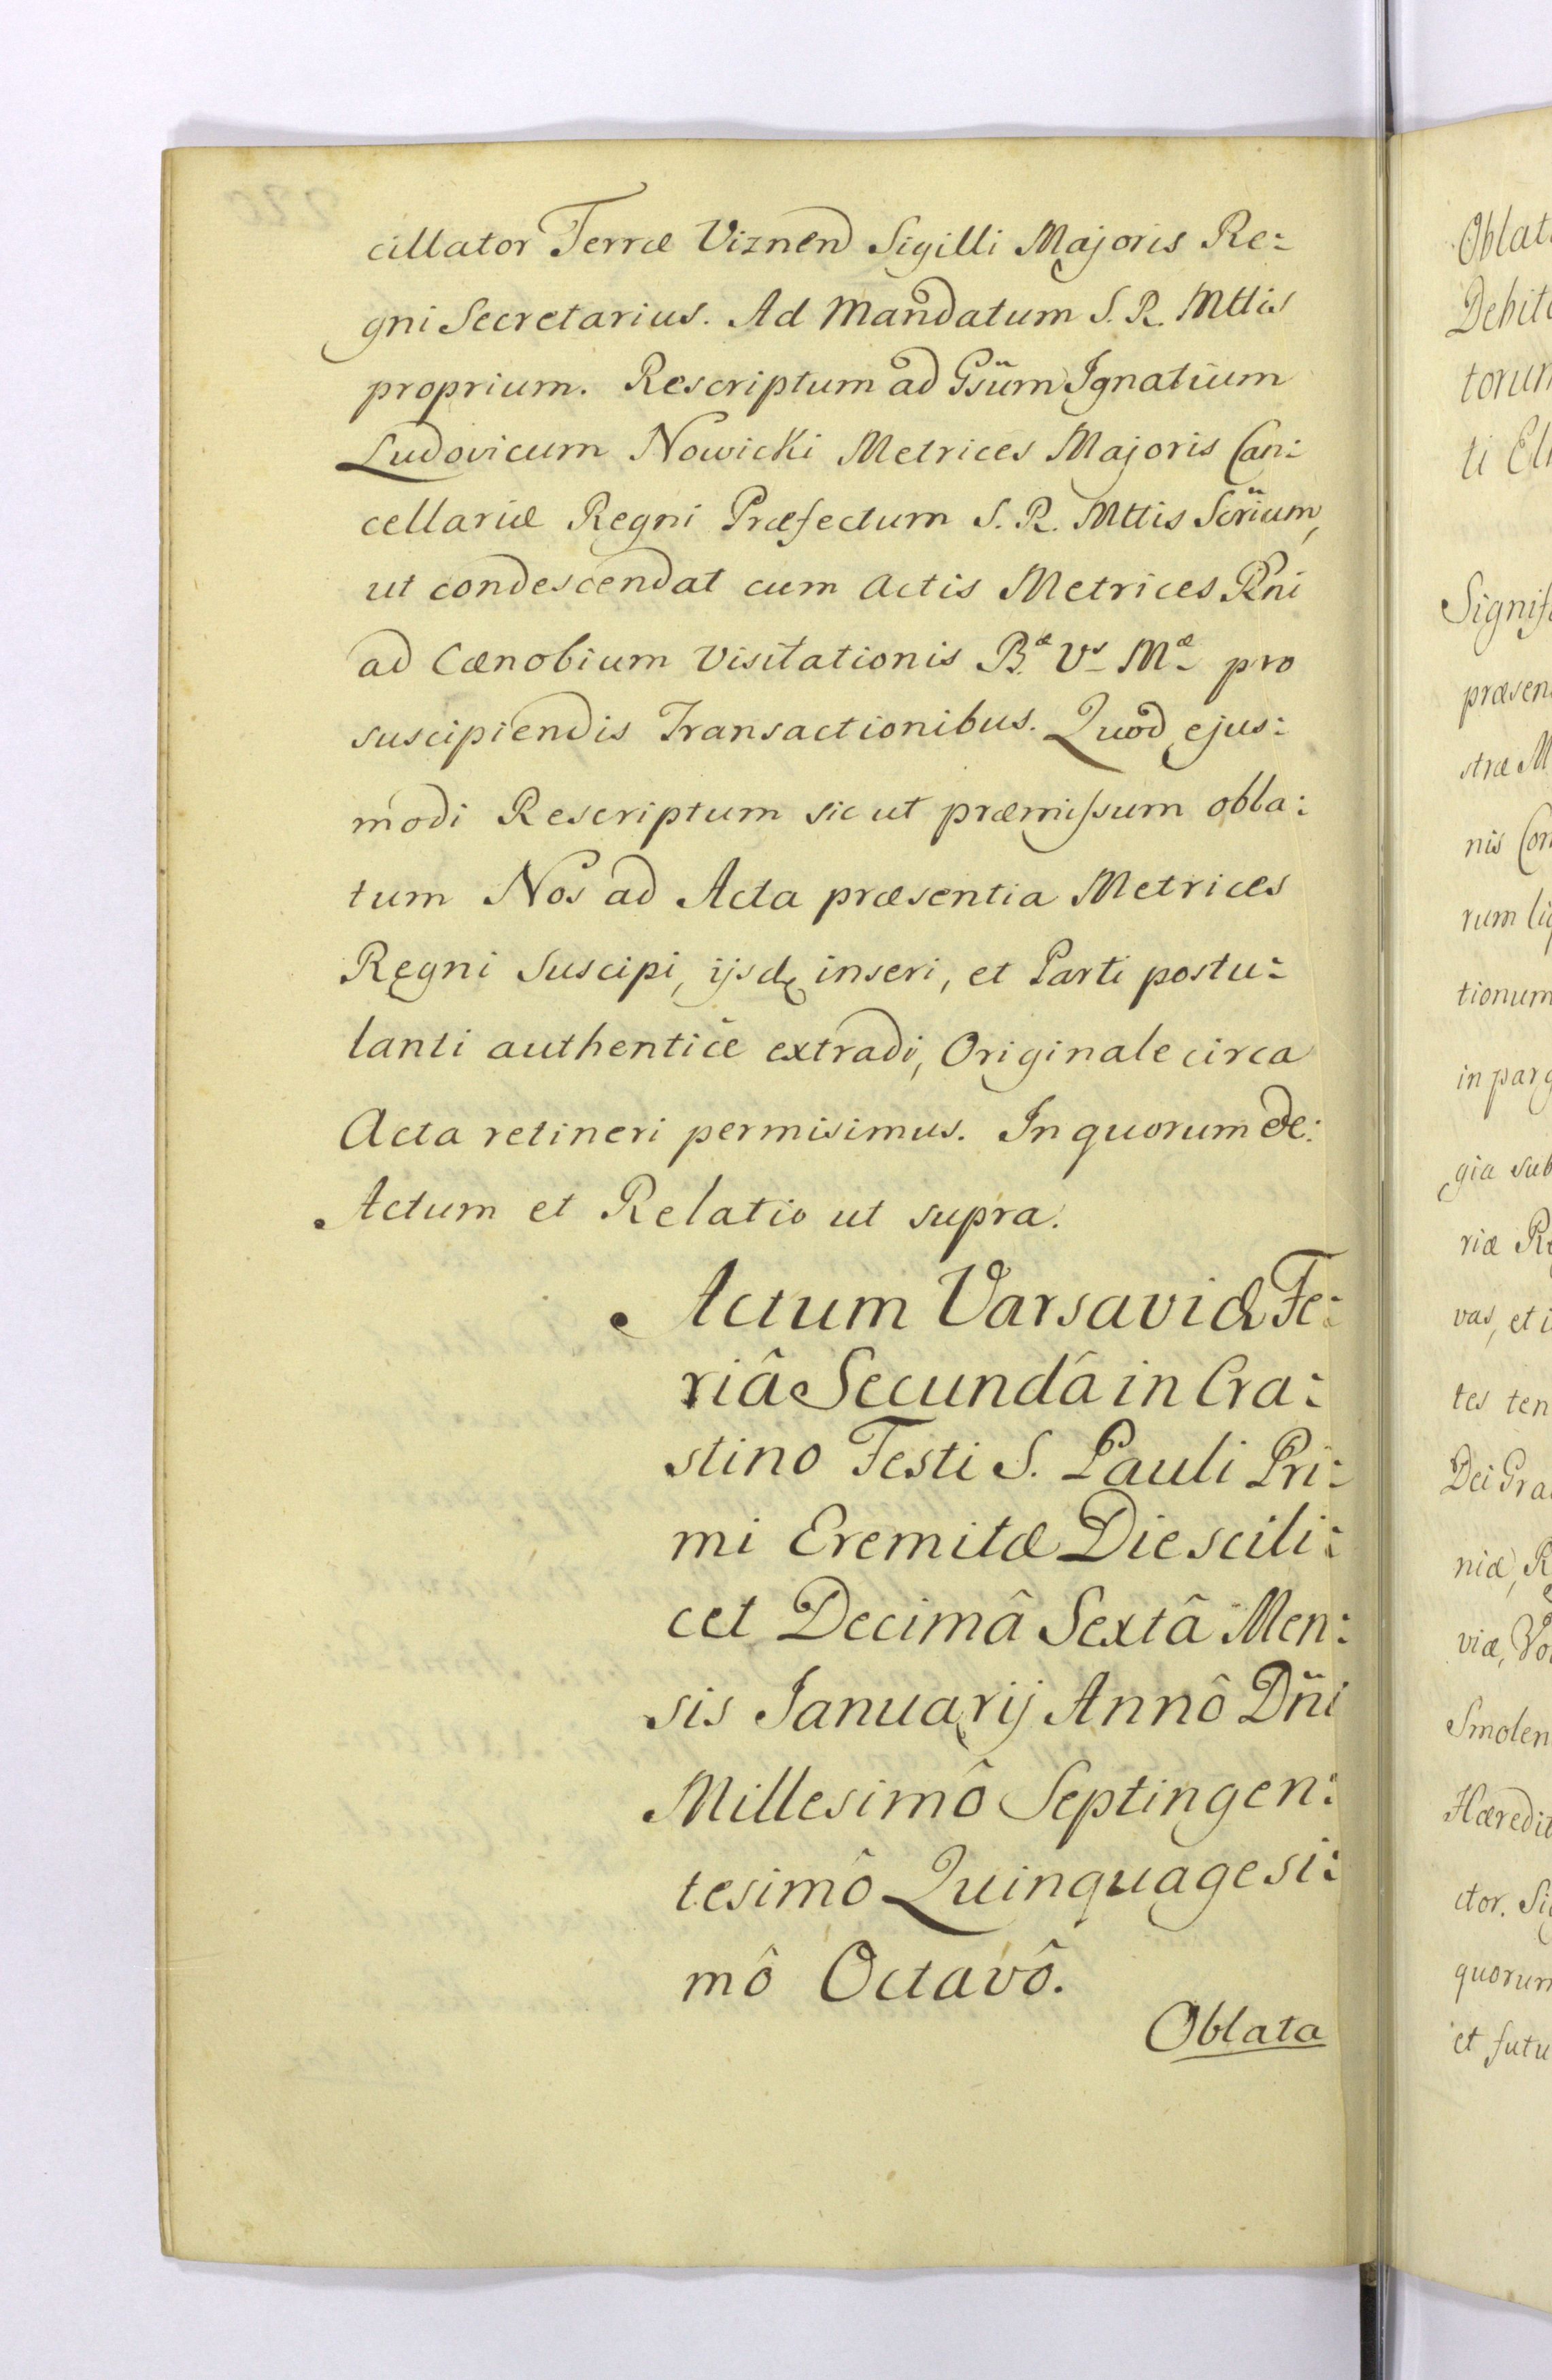 cillator Terræ Viznen Sigilli Majoris Re:
gni Secretarius. Ad Mandatum S. R. Mttis
proprium. Rescriptum ad Gsüm Ignatium
Ludovicum Nowicki Metrices Majoris Can:
cellariæ Regni Præfectum S. R. Mttis Scrium,
ut condescendat cum Actis Metrices Rni
ad Cænobium Visitationis B.æ Vs Mæ pro
suscipiendis Transactionibus. Quod ejus:
modi Rescriptum sic ut præmissum obla:
tum Nos ad Acta præsentia Metrices
Regni Suscipi, ijsdę inseri, et Parti postu:
lanti authenticè extradi, Originale circa
Acta retineri permisimus. In quorum &c:
Actum et Relatio ut supra.
Actum Varsaviæ Fe:
riâ Secundâ in Cra:
stino Festi S. Pauli Pri:
mi Eremitæ Die scili:
cet Decimâ Sextâ Men:
sis Januarij Annô Dñi
Millesimô Septingen:
tesimô Quinquagesi:
mô Octavô.
Oblata
Oblat
Debit
torum
ti El
Signif
præsen
stræ M
nis Con
rum li
tionum
in par
gia sub
riæ Re
vas, et i
tes ten
Dei Gra
niæ, R
viæ, Vo
Smolen
Hæredit
ctor. Si
quorum
et futu